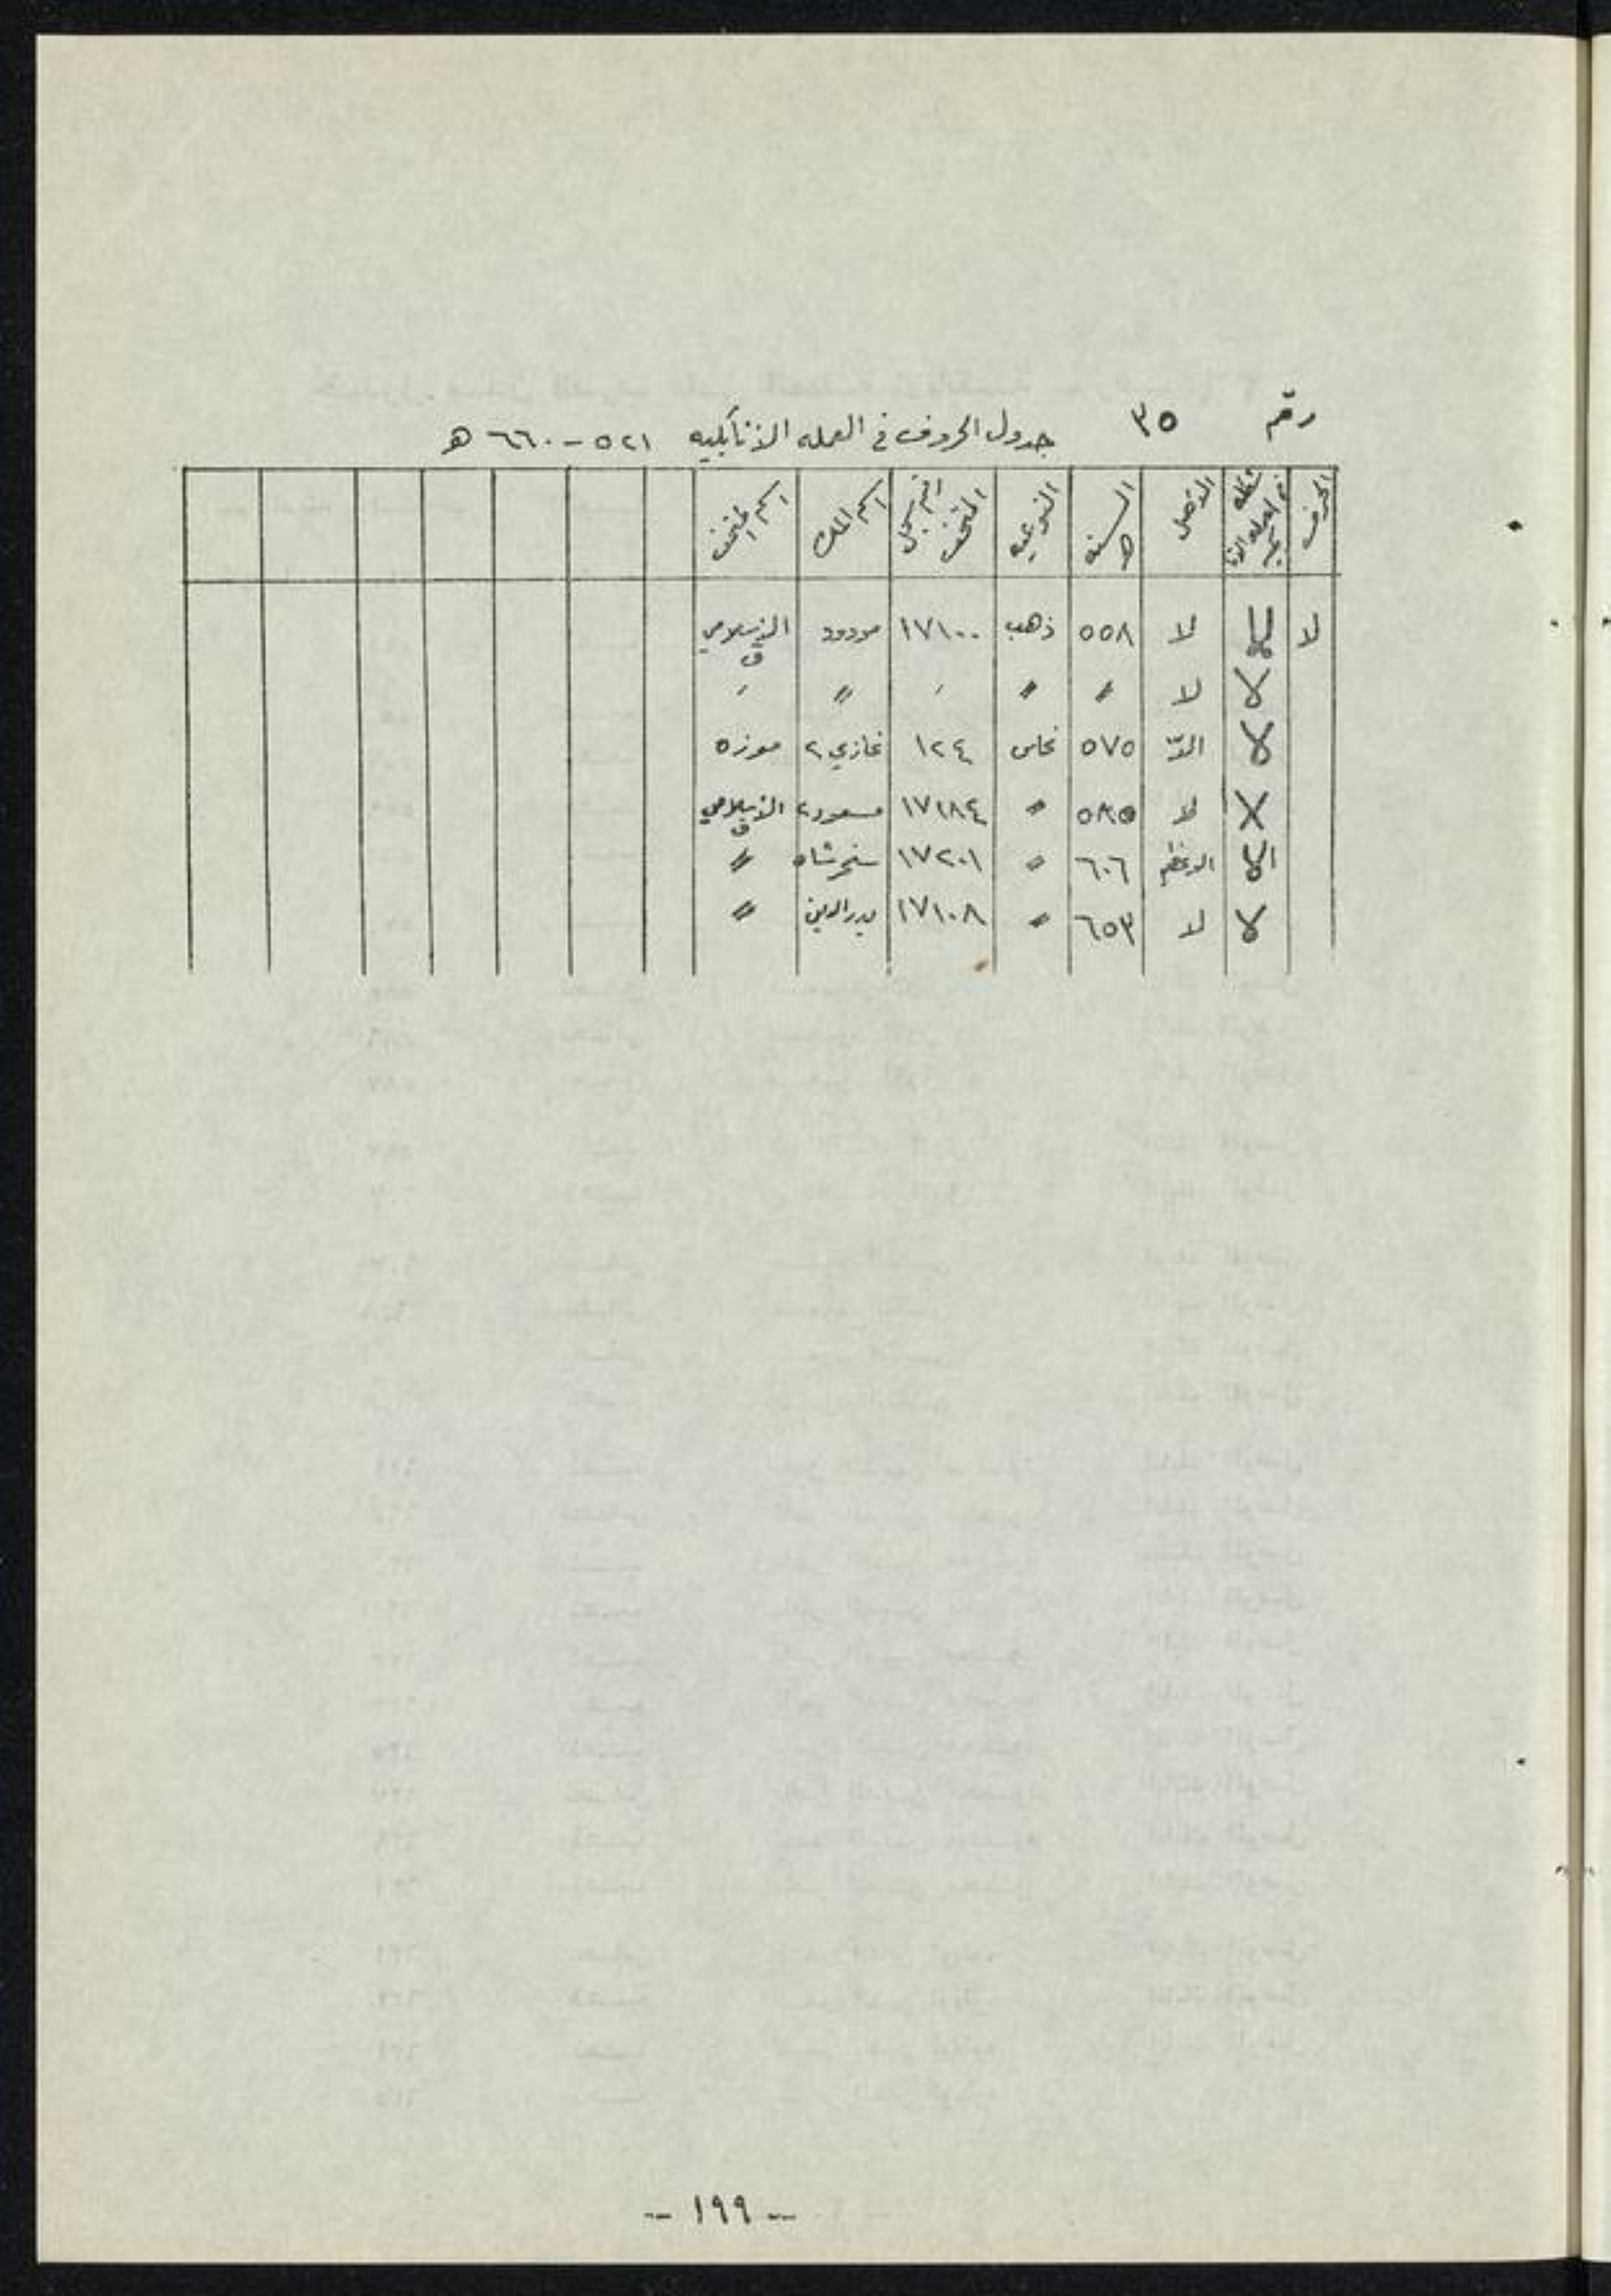 رقم ٣٥ جدول الحروف في العمله الاتابكيه ٥٢١ - ٦٦٠ هـ
الحرف شكله في العمله الاتابكيه الاصل السنه هـ النوعيه رقم سجل المتحف اسم الملك اسم المتحف
لا لا لا ٥٥٨ ذهب ١٧١٠٠ مودود الاسلامي ق
لا لا 〃 〃 〃 〃 〃
لا الا ٥٧٥ نحاس ١٢٤ غازي ٢ موزه
لا لا ٥٨٥ 〃 ١٧١٨٤ مسعود ٢ الاسلامي ق
الا الاعظم ٦٠٦ 〃 ١٧٢٠١ سنجرشاه 〃
لا لا ٦٥٣ 〃 ١٧١٠٨ بدرالدين 〃
- ١٩٩ -